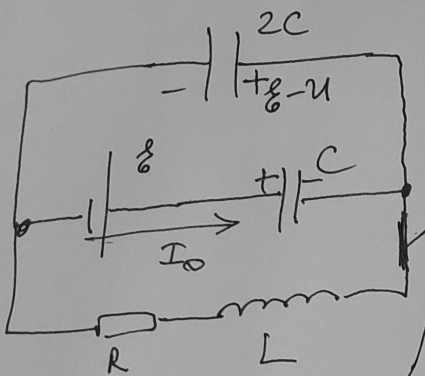 2C
− + ℰ−U
ℰ
+ − C
I₀
R L